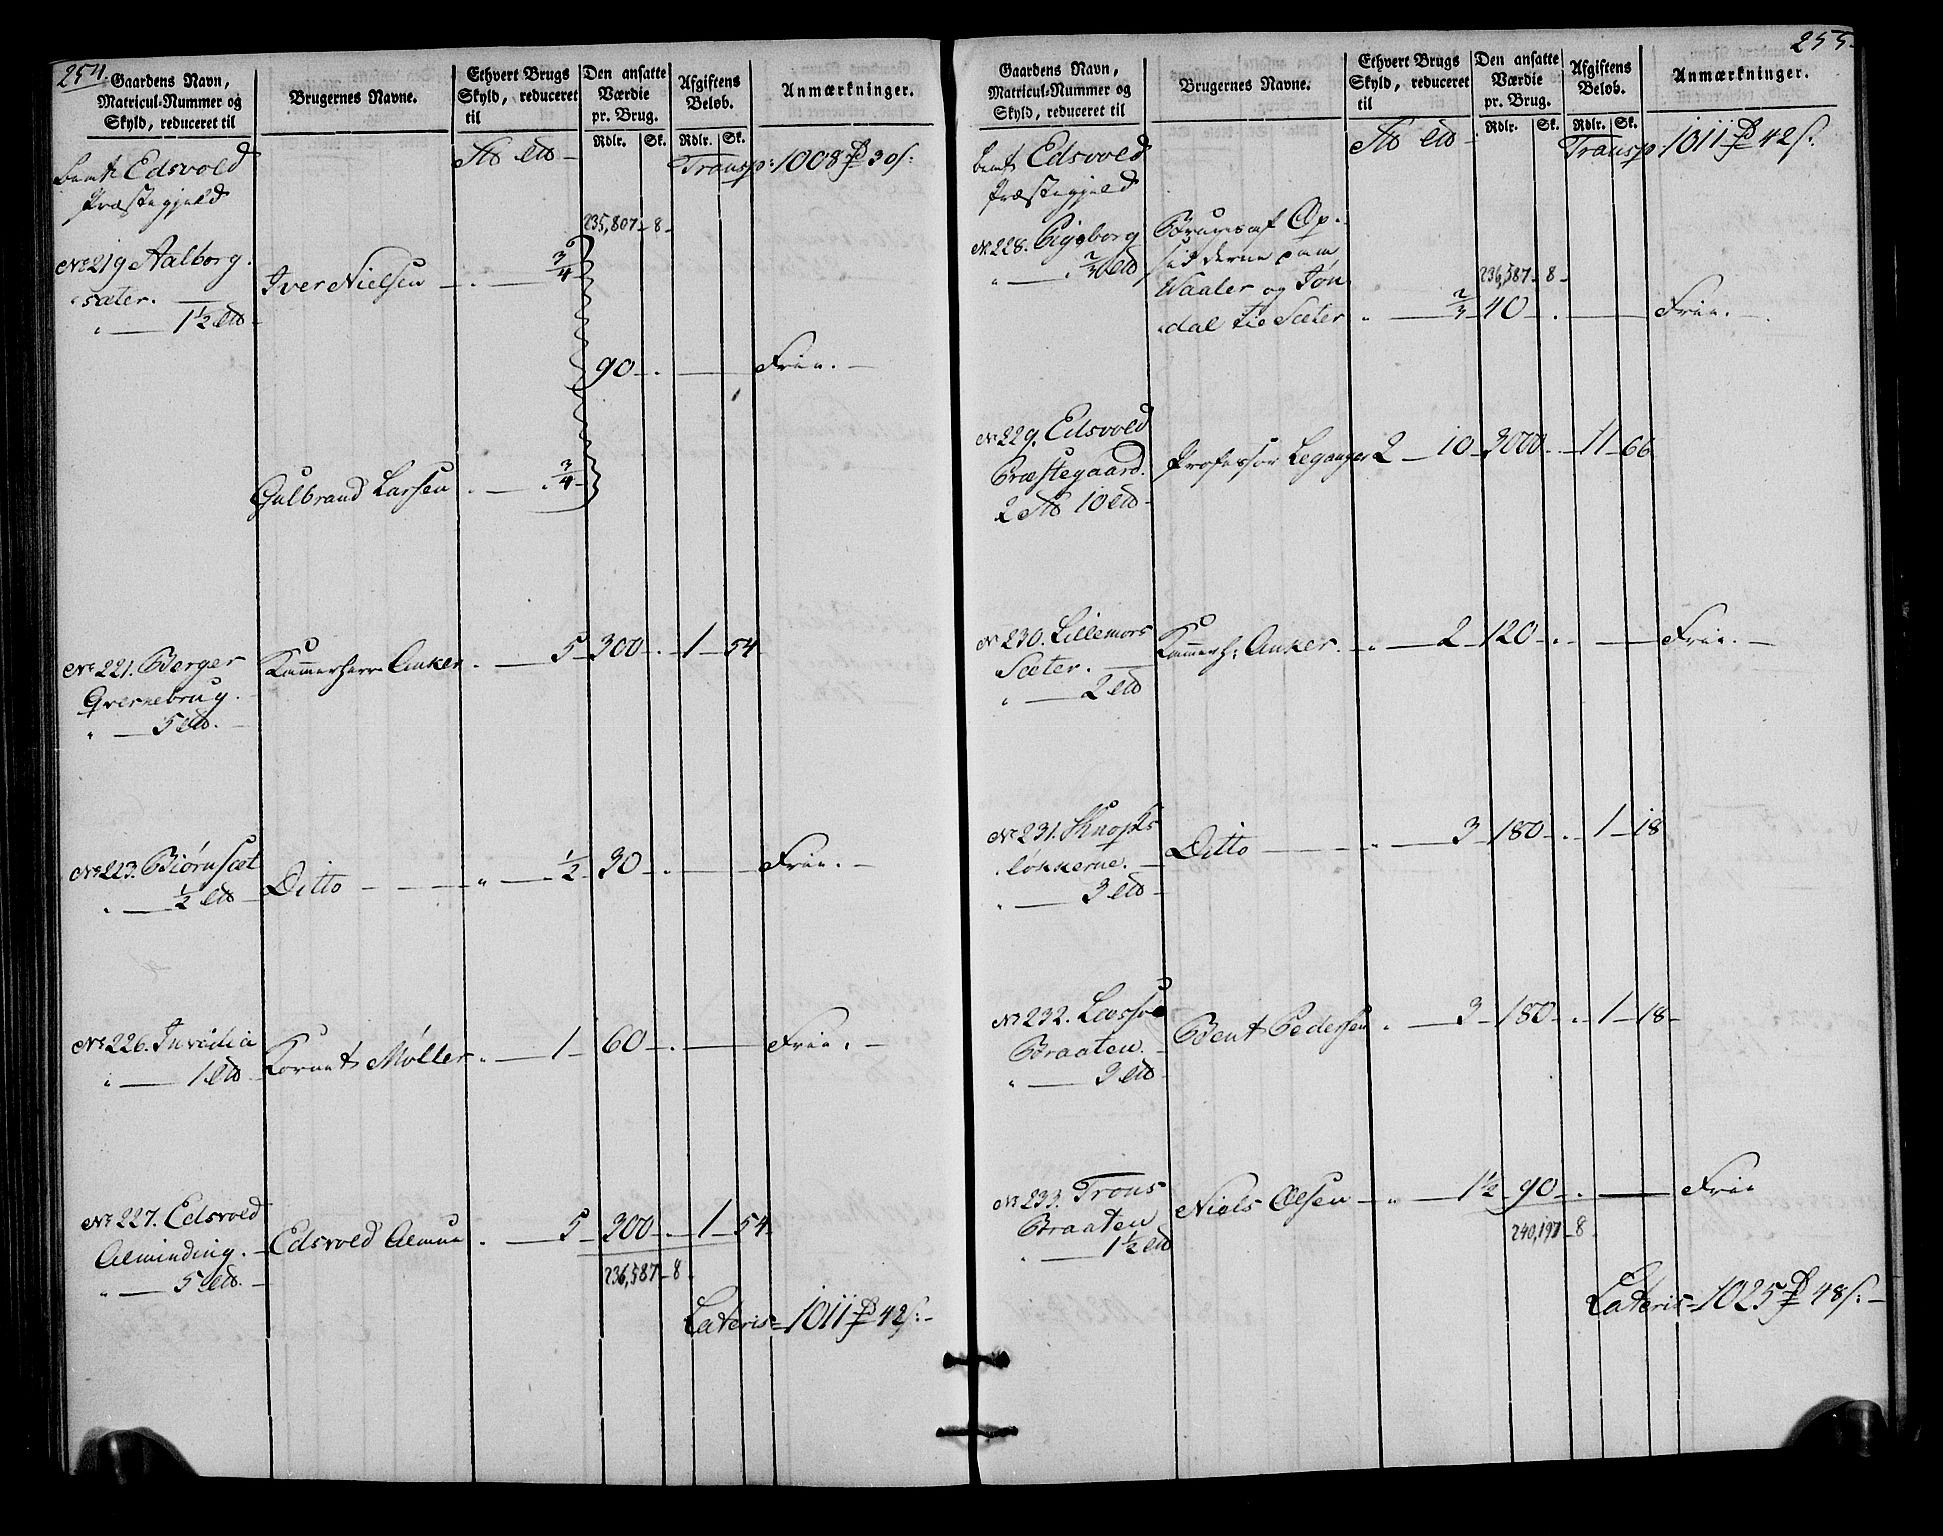 254.
Gaardens Navn,
Matricul-Nummer og
Skyld, reduceret til
Brugernes Navne.
Ethvert Brugs
Skyld, reduceret
til
Den ansatte
Værdie
pr. Brug.
Rdlr. Sk.
Afgiftens
Beløb.
Rdlr. Sk.
Anmærkninger.
Edsvold
Præstegjeld
Transp: 1008 30 s:
235,807 - 8 -
No 219 Aalborg
sæter.
" — 1½
Iver Nielsen . — ¾
90 - . — Frie. -
Gulbrand Larsen . — ¾
No 221. Berger
Qvernebrug.
" — 5
Kammerherr Anker . — 5 - 300 - . - 1 - 54
No 223. Biørnsæt
" — ½
Ditto — " — ½ - 30 - . — Frie. -
No 226. Invidia
" — 1
Kornet Møller . — 1 - 60 - . — Frie. -
No 227. Edsvold
Alminding.
" — 5
Edsvold Almue . — 5 - 300 - . 1 - 54
236,587 - 8 .
Lateris = 1011 42 s: -
255.
Gaardens Navn,
Matricul-Nummer og
Skyld, reduceret til
Brugernes Navne.
Ethvert Brugs
Skyld, reduceret
til
Den ansatte
Værdie
pr. Brug.
Rdlr. Sk.
Afgiftens
Beløb.
Rdlr. Sk.
Anmærkninger.
Edsvold
Præstegjeld
Transp: 1011 42 s:
No 228.
" — ⅔
Bruges af Op-
sidderne paa
Waaler og Jøn
dal til Sæter " — ⅔ - 40 - . — Frie. -
236,587 - 8 -
No 229. Edsvold
Præstegaard.
2 10
Professor Leganger 2 - 10 - 3000 - . - 11 - 66
No 230. Lillemors
Sæter.
" — 2
Kammerh: Anker. - . — 2 - 120 - . — Frie. -
No 231.
løkkerne.
" — 3
Ditto — " — 3 - 180 - . - 1 - 18
No 232.
Braaten.
" — 3
Bent Pedersen . — 3 - 180 - . - 1 - 18 -
No 233. Trons
Braaten
" — 1½
Niels Olsen — " — 1½ - 90 - . — Frie
240,197 - 8
Lateris = 1025 48 s: -